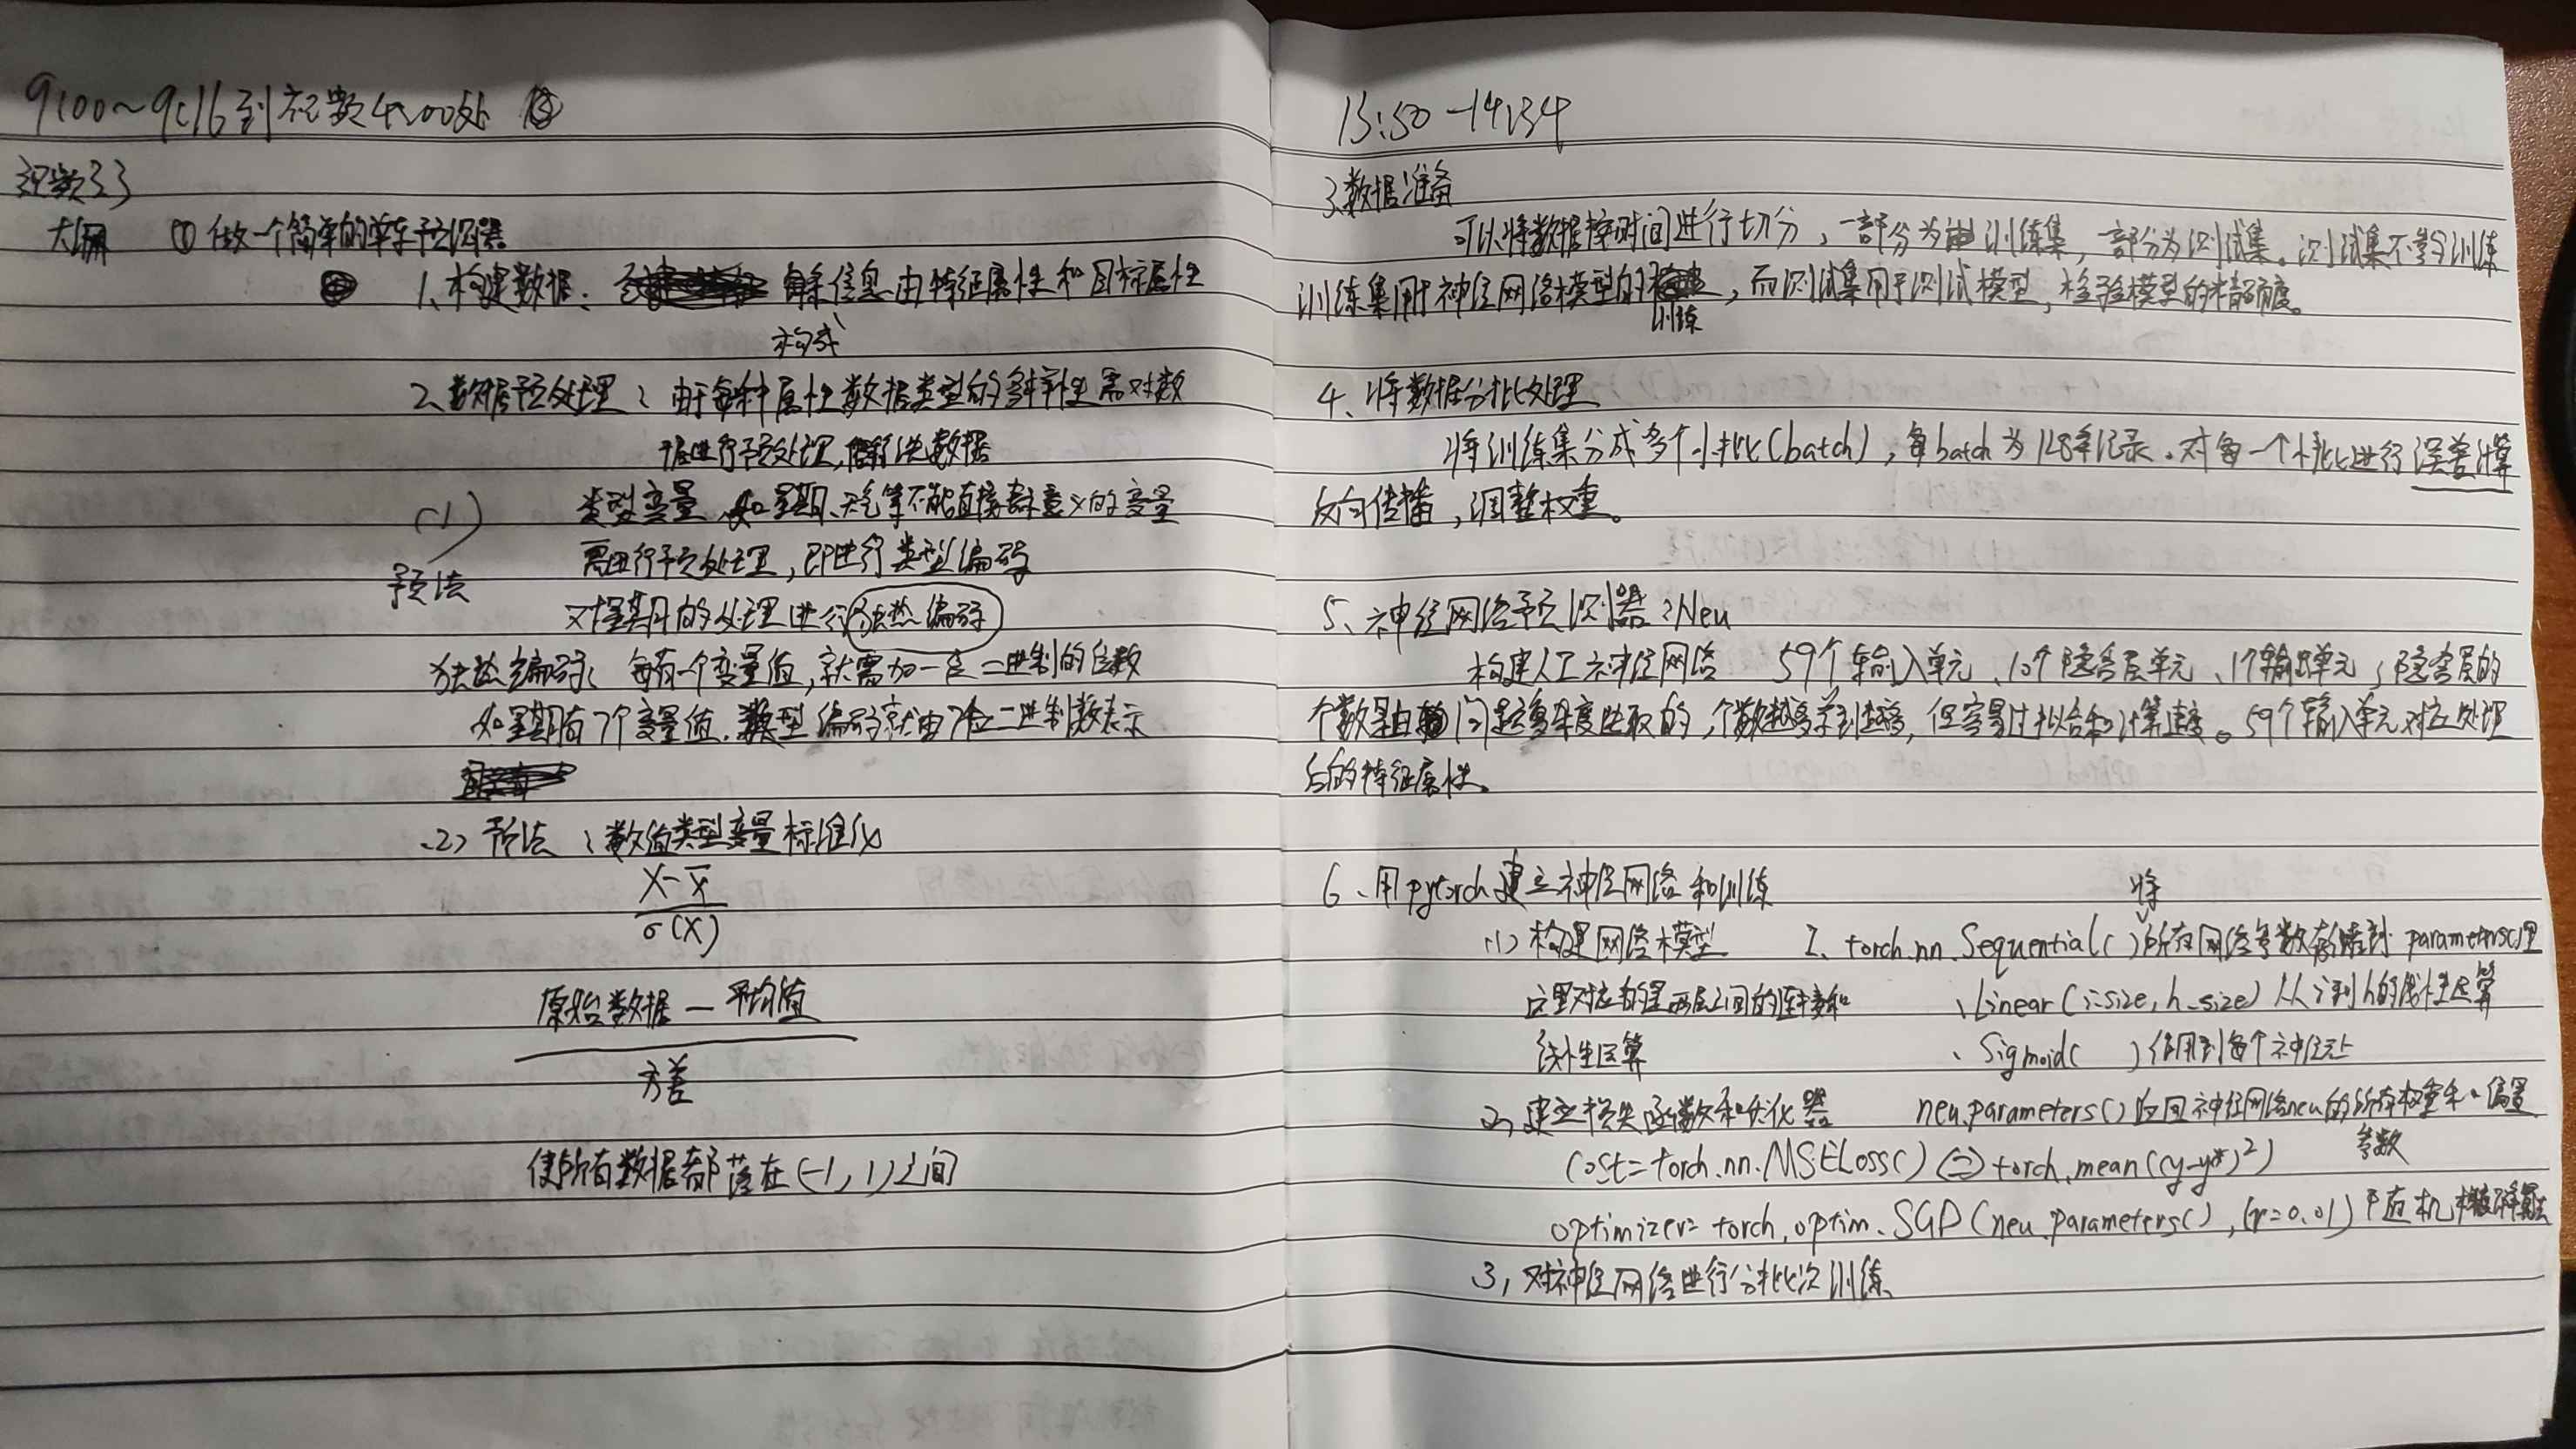 9:00~9:16到视频4:00处
视频3.3
大纲 ① 做一个简单的单车预测器
1、构建数据: 每条信息由特征属性和目标属性
构成
2、数据预处理: 由于每种属性数据类型的多样性需对数
据进行预处理, 数据
(1) 类型变量 如星期、天气等不能直接表示意义的变量
需进行预处理,即进行类型编码
预法
对星期的处理进行独热编码
独热编码: 每有一个变量值,就需加一位二进制的位数
如星期有7个变量值.类型编码就由7位二进制数表示
(2) 预法 :数值类型变量标准化
X-X̄
σ(X)
原始数据 — 平均值
方差
使所有数据都落在(-1,1)之间
13:50-14:34
3、数据准备
可以将数据按时间进行切分,一部分为训练集,一部分为测试集。测试集不参与训练
训练集用于神经网络模型的训练,而测试集用于测试模型,检验模型的精确度。
4、将数据分批处理
将训练集分成多个小批(batch),每batch为128条记录.对每一个小批进行误差计算
反向传播,调整权重。
5、神经网络预测器:Neu
构建人工神经网络 59个输入单元、10个隐含层单元、1个输出单元;隐含层的
个数是由问题复杂度选取的,个数越多学到越多,但容易过拟合和计算速度。59个输入单元对应处理
后的特征属性。
6、用pytorch建立神经网络和训练
(1) 构建网络模型 1、torch.nn.Sequential()将所有网络参数存储到parameters()里
这里对应的是两层之间的连接和 、Linear(i-size,h-size)从i到h的线性运算
线性运算 、Sigmoid( )作用到每个神经元上
2, 建立损失函数和优化器 neu.parameters()返回神经网络neu的所有权重和偏置
参数
Cost=torch.nn.MSELoss()⇔torch.mean((y-y*)²)
optimizer=torch.optim.SGD(neu.parameters(),lr=0.01)随机梯度下降算法
3, 对神经网络进行分批次训练